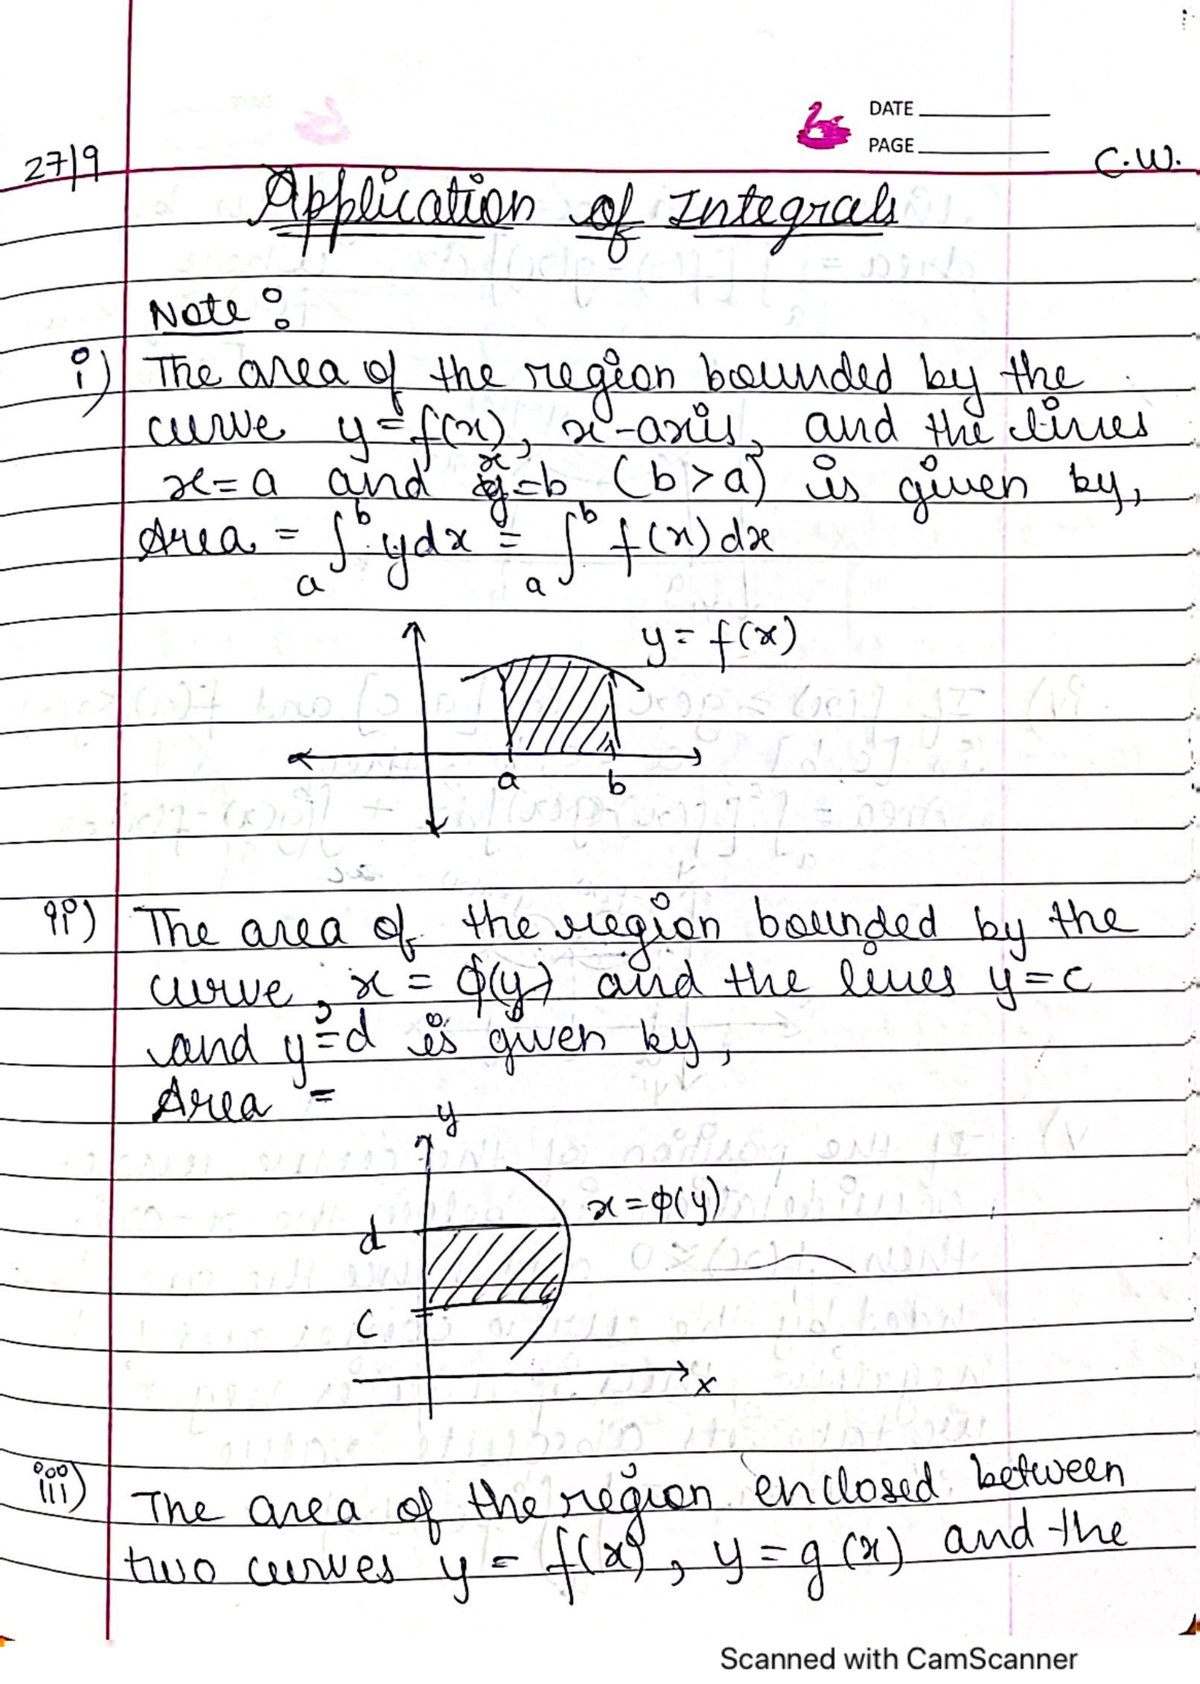 DATE
PAGE
27/9
C.W.
Application of Integrals
Note :
i) The area of the region bounded by the
curve y = f(x), x-axis, and the lines
x = a and x = b (b > a) is given by,
Area = ∫ₐᵇ y dx = ∫ₐᵇ f(x) dx
y = f(x)
a b
ii) The area of the region bounded by the
curve, x = ϕ(y) and the lines y = c
and y = d is given by,
Area =
y
x = ϕ(y)
d
c
x
iii) The area of the region enclosed between
two curves y = f(x), y = g(x) and the
Scanned with CamScanner